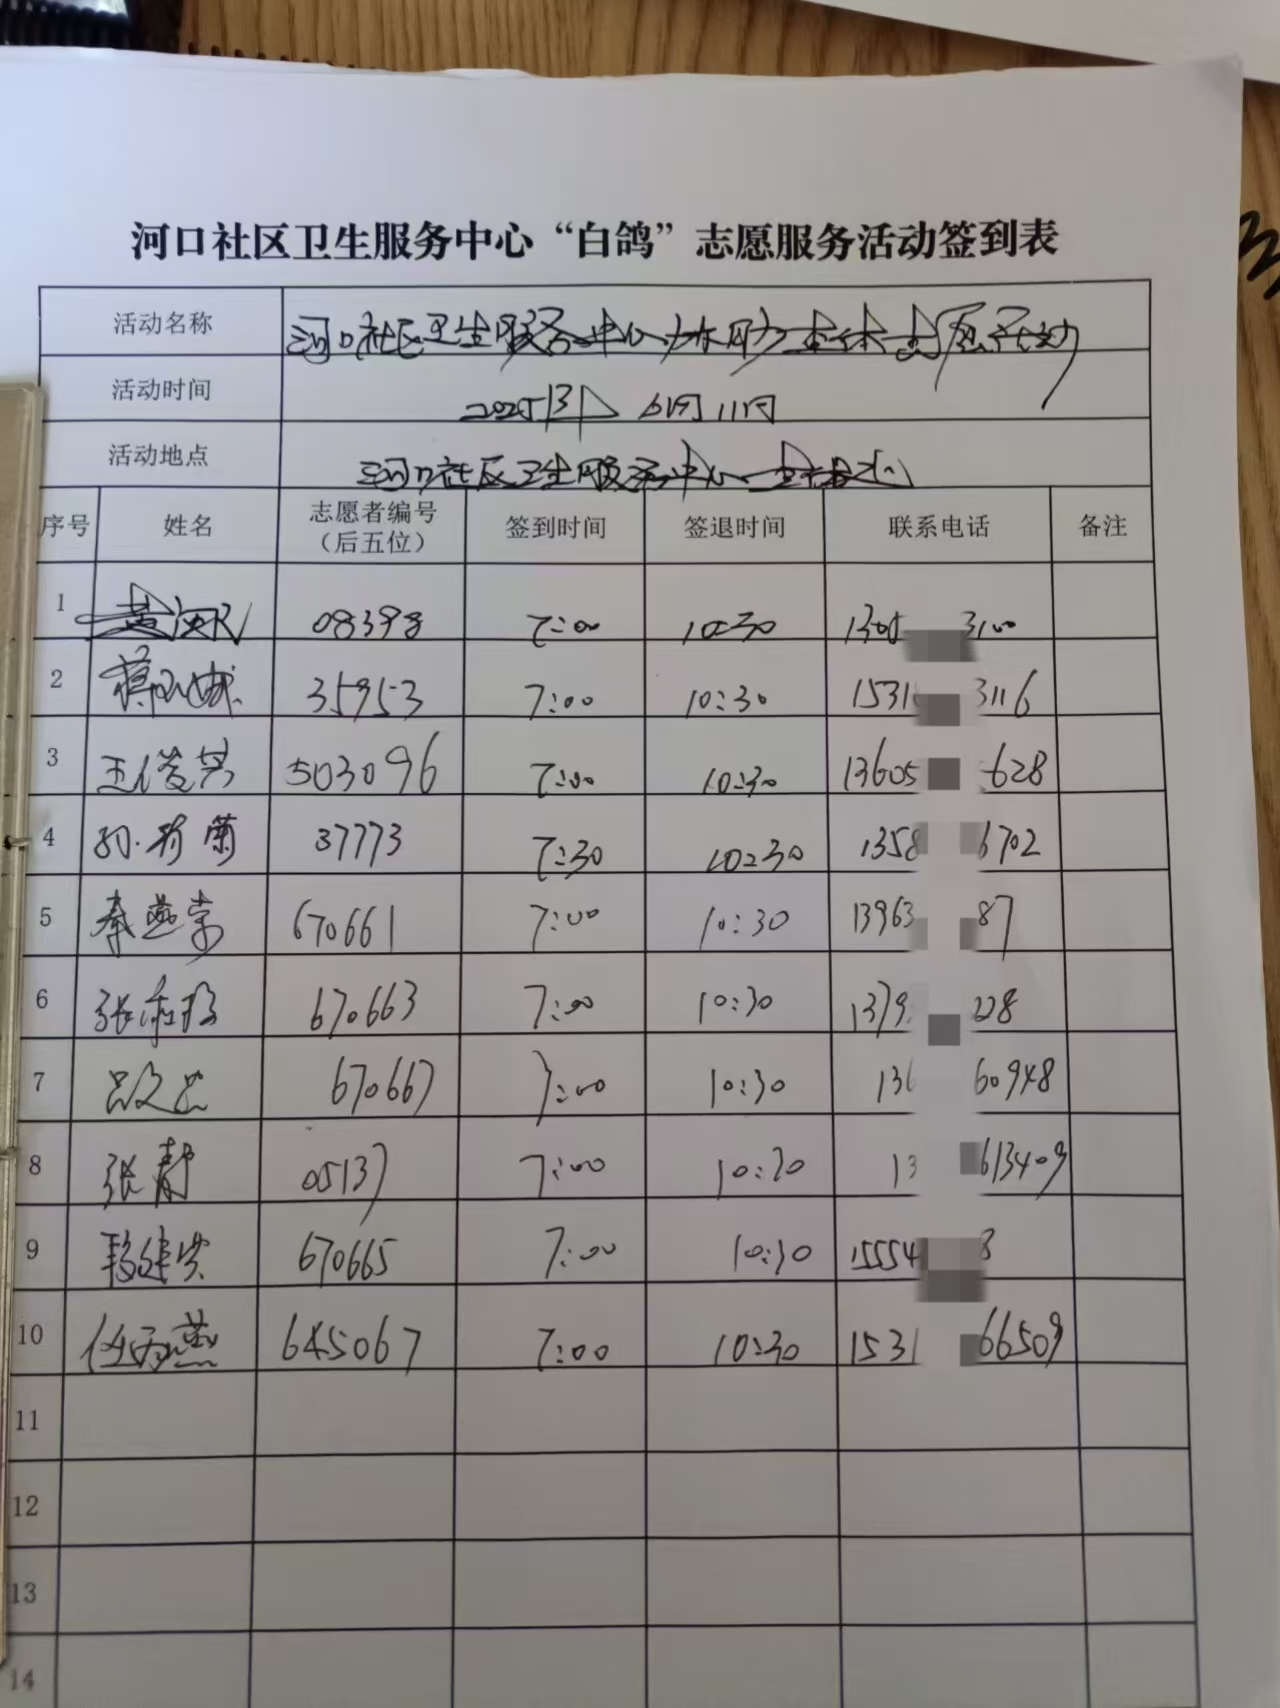 河口社区卫生服务中心“白鸽”志愿服务活动签到表
活动名称 河口社区卫生服务中心协助查体志愿活动
活动时间 2025年 6月11日
活动地点 河口社区卫生服务中心
序号 姓名 志愿者编号（后五位） 签到时间 签退时间 联系电话 备注
1 08398 7:00 10:30 1305 3100
2 35953 7:00 10:30 1531 3116
3 王俊芳 503096 7:00 10:30 13605 628
4 37773 7:30 10:30 1358 6702
5 秦燕 670661 7:00 10:30 13963 87
6 张 670663 7:00 10:30 1379 228
7 吕文 670667 7:00 10:30 136 60948
8 张静 05137 7:00 10:30 13 613409
9 670665 7:00 10:30 15554 8
10 任丙燕 645067 7:00 10:30 1531 66509
11
12
13
14